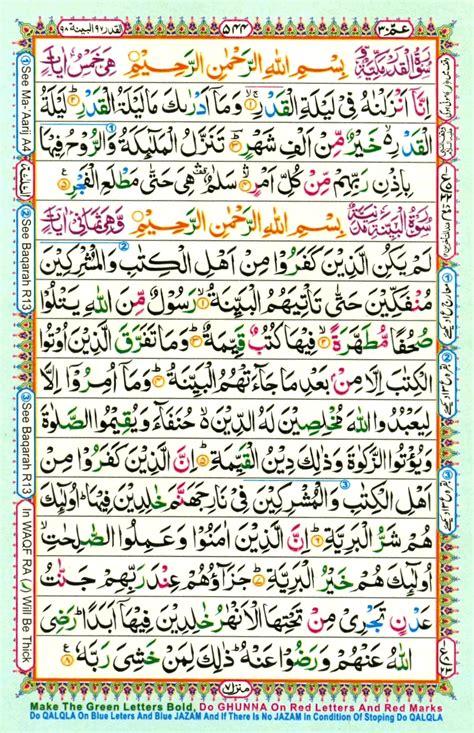 القدر ٩٧ البينة ٩٨
٥٤٤
عم ٣٠
سُوْرَةُ الْقَدْرِ مَكِّيَّةٌ بِسْمِ اللهِ الرَّحْمٰنِ الرَّحِيْمِ هِيَ خَمْسُ اٰيَاتٍ
اِنَّاۤ اَنْزَلْنٰهُ فِيْ لَيْلَةِ الْقَدْرِ ۚ﴿۱﴾ وَمَاۤ اَدْرٰىكَ مَا لَيْلَةُ الْقَدْرِ ؕ﴿۲﴾ لَيْلَةُ
الْقَدْرِ ۙ خَيْرٌ مِّنْ اَلْفِ شَهْرٍ ؕ﴿۳﴾ تَنَزَّلُ الْمَلٰٓئِكَةُ وَالرُّوْحُ فِيْهَا
بِاِذْنِ رَبِّهِمْ مِّنْ كُلِّ اَمْرٍ ۙ﴿۴﴾ سَلٰمٌ ۛ هِيَ حَتّٰى مَطْلَعِ الْفَجْرِ ﴿۵﴾
سُوْرَةُ الْبَيِّنَةِ مَدَنِيَّةٌ بِسْمِ اللهِ الرَّحْمٰنِ الرَّحِيْمِ وَهِيَ ثَمَانِيْ اٰيَاتٍ
لَمْ يَكُنِ الَّذِيْنَ كَفَرُوْا مِنْ اَهْلِ الْكِتٰبِ وَالْمُشْرِكِيْنَ
مُنْفَكِّيْنَ حَتّٰى تَاْتِيَهُمُ الْبَيِّنَةُ ۙ﴿۱﴾ رَسُوْلٌ مِّنَ اللهِ يَتْلُوْا
صُحُفًا مُّطَهَّرَةً ۙ﴿۲﴾ فِيْهَا كُتُبٌ قَيِّمَةٌ ؕ﴿۳﴾ وَمَا تَفَرَّقَ الَّذِيْنَ اُوْتُوا
الْكِتٰبَ اِلَّا مِنْۢ بَعْدِ مَا جَآءَتْهُمُ الْبَيِّنَةُ ؕ﴿۴﴾ وَمَاۤ اُمِرُوْۤا اِلَّا
لِيَعْبُدُوا اللهَ مُخْلِصِيْنَ لَهُ الدِّيْنَ ۙ حُنَفَآءَ وَيُقِيْمُوا الصَّلٰوةَ
وَيُؤْتُوا الزَّكٰوةَ وَذٰلِكَ دِيْنُ الْقَيِّمَةِ ؕ﴿۵﴾ اِنَّ الَّذِيْنَ كَفَرُوْا مِنْ
اَهْلِ الْكِتٰبِ وَالْمُشْرِكِيْنَ فِيْ نَارِ جَهَنَّمَ خٰلِدِيْنَ فِيْهَا ؕ اُولٰٓئِكَ
هُمْ شَرُّ الْبَرِيَّةِ ؕ﴿۶﴾ اِنَّ الَّذِيْنَ اٰمَنُوْا وَعَمِلُوا الصّٰلِحٰتِ ۙ
اُولٰٓئِكَ هُمْ خَيْرُ الْبَرِيَّةِ ؕ﴿۷﴾ جَزَآؤُهُمْ عِنْدَ رَبِّهِمْ جَنّٰتُ
عَدْنٍ تَجْرِيْ مِنْ تَحْتِهَا الْاَنْهٰرُ خٰلِدِيْنَ فِيْهَاۤ اَبَدًا ؕ رَضِيَ
اللهُ عَنْهُمْ وَرَضُوْا عَنْهُ ؕ ذٰلِكَ لِمَنْ خَشِيَ رَبَّهٗ ﴿۸﴾
① See Ma-'Aarij A4
② See Baqarah R13
③ See Baqarah R13
In WAQF RA (ر) Will Be Thick
منزل ٧
Make The Green Letters Bold, Do GHUNNA On Red Letters And Red Marks
Do QALQLA On Blue Leters And Blue JAZAM And If There Is No JAZAM In Condition Of Stoping Do QALQLA